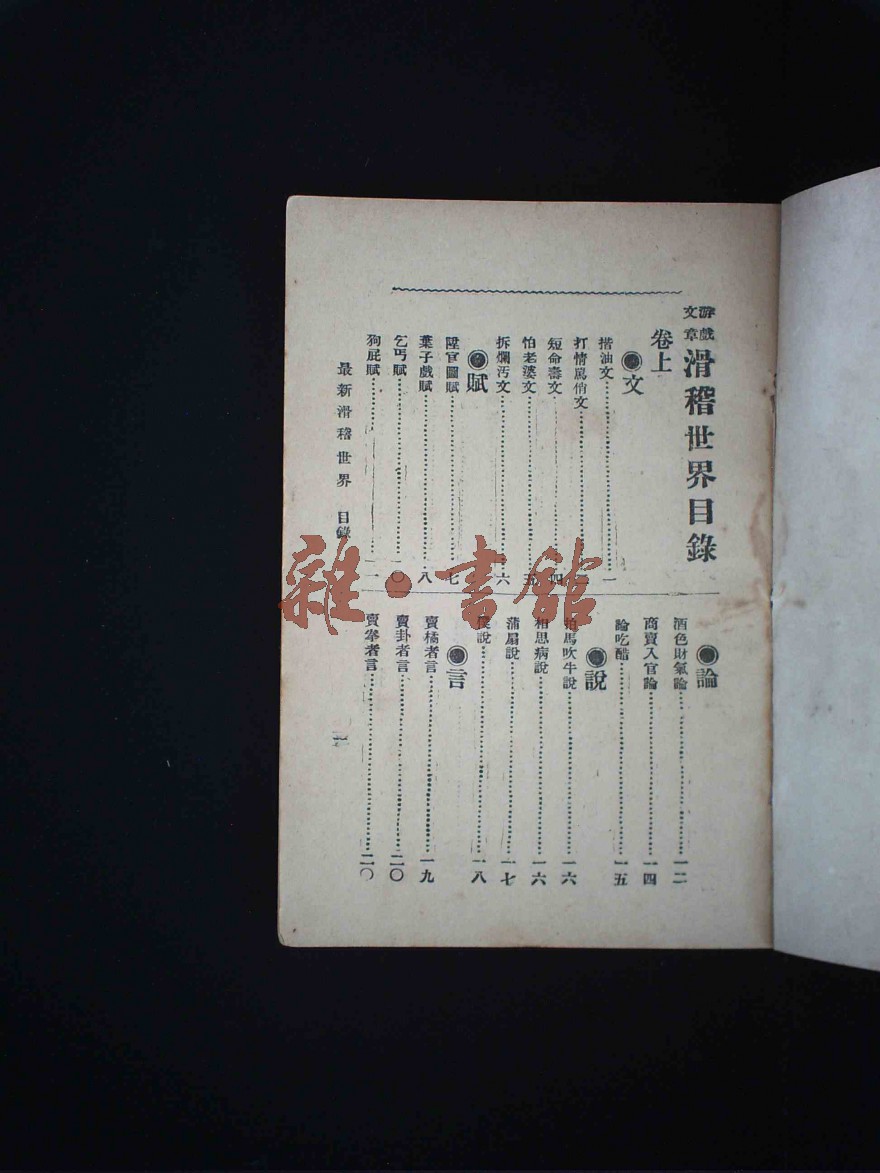 游戲文章 滑稽世界目錄
卷上
●文
揩油文……一
打情罵俏文……二
短命壽文……四
怕老婆文……五
拆爛汚文……六
●賦
陞官圖賦……七
葉子戲賦……八
乞丐賦……一〇
狗屁賦……一一
●論
酒色財氣論……一二
商賣入官論……一四
論吃醋……一五
●說
拍馬吹牛說……一六
相思病說……一六
蒲扇說……一七
僕說……一八
●言
賣橘者言……一九
賣卦者言……二〇
賣宰者言……二〇
最新滑稽世界 目錄
雜·書館